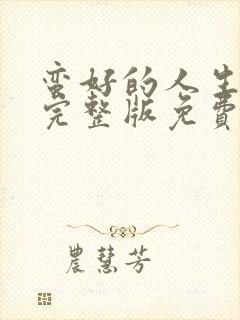 蛮好的人生
完整版免費
農慧芳